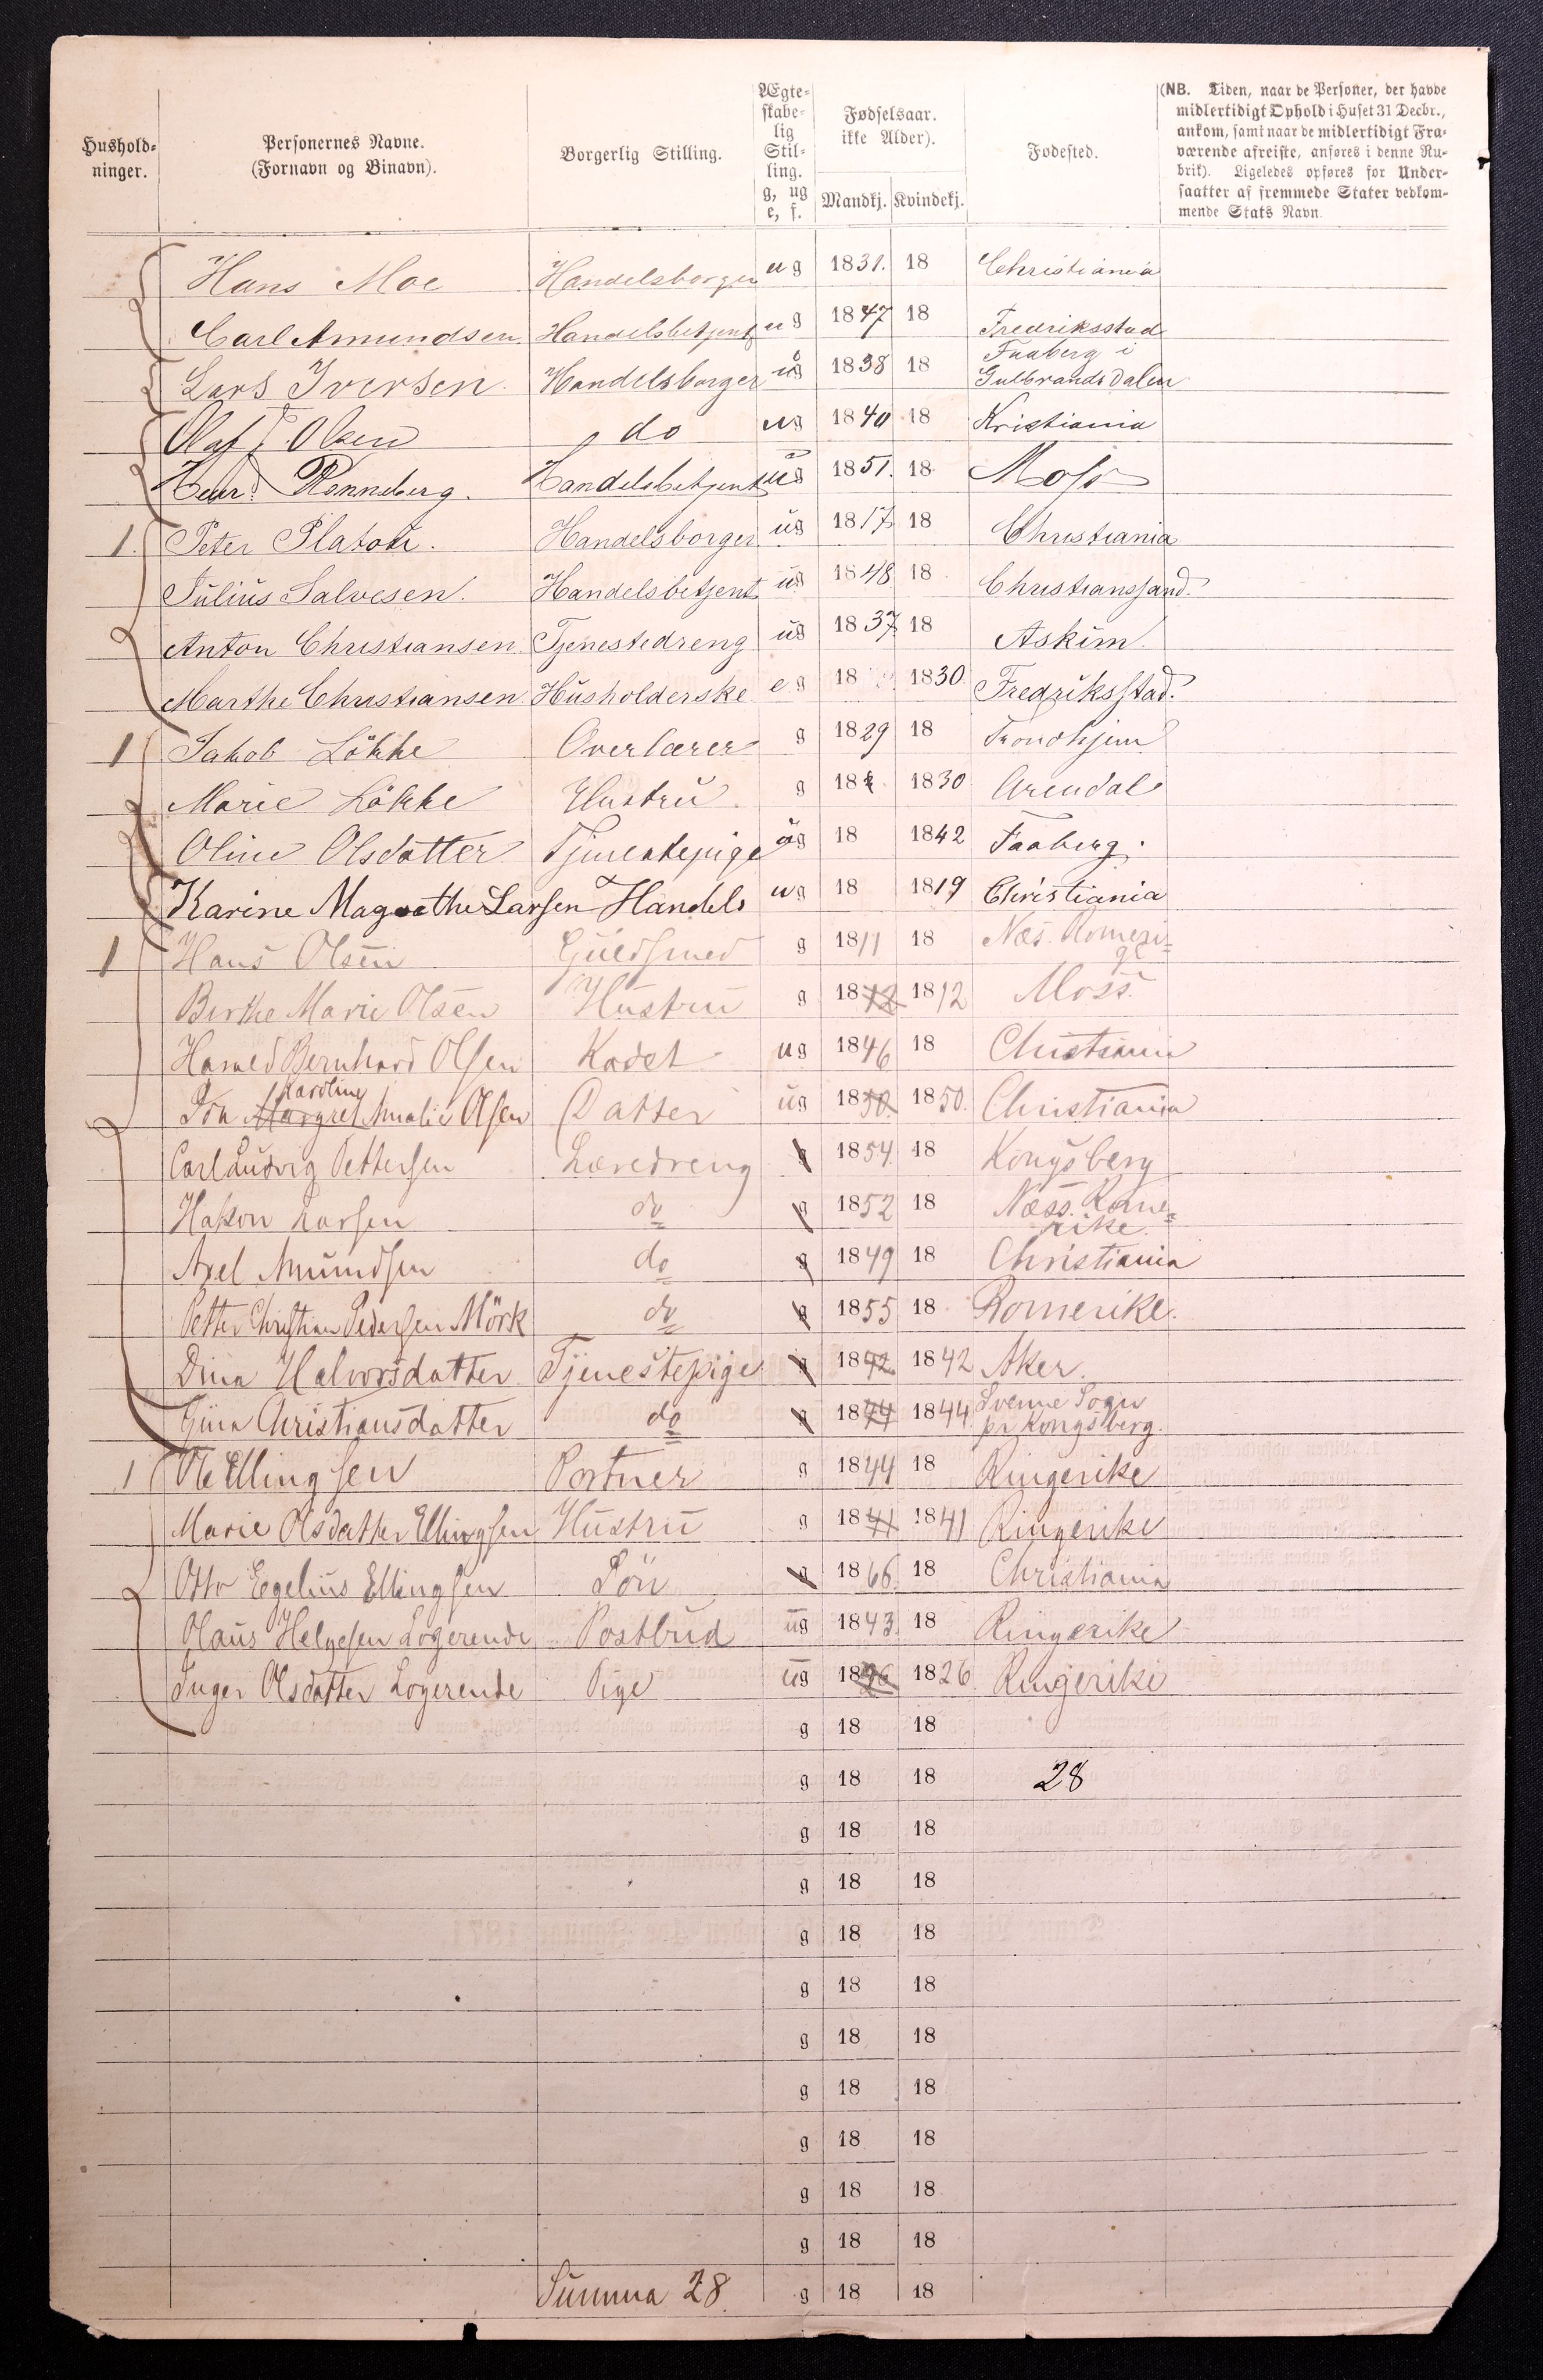 Hushold-
ninger.
Personernes Navne.
(Fornavn og Binavn).
Borgerlig Stilling.
Ægte-
skabe-
lig
Stil-
ling.
g, ug
e, f.
Fødselsaar.
ikke Alder).
Mandkj. Kvindekj.
Fødested.
(NB. Tiden, naar de Personer, der havde
midlertidigt Ophold i Huset 31 Decbr.,
ankom, samt naar de midlertidigt Fra-
værende afreiste, anføres i denne Ru-
brik). Ligeledes opføres for Under-
saatter af fremmede Stater vedkom-
mende Stats Navn.
Hans Moe Handelsborger ug 1831. 18 Christiania
Carl Amundsen Handelsbetjent ug 1847 18 Fredriksstad
Lars Iversen Handelsborger ug 1838 18 Faaberg i
Gulbrandsdalen
Olaf T. Olsen do ug 1840 18 Kristiania
Rønneberg. Handelsbetjent ug 1851. 18 Moss
1. Peter Platou. Handelsborger ug 1817 18 Christiania
Julius Salvesen. Handelsbetjent ug 1848 18 Christianssand.
Anton Christiansen Tjenestedreng ug 1837 18 Askim.
Marthe Christiansen Husholderske e g 18 1830 Fredriksstad.
1 Jakob Lökke Overlærer g 1829 18 Trondhjem
Marie Lökke Hustru g 18 1830 Arendal
Oline Olsdatter Tjenestepige ug 18 1842 Faaberg.
Karine Magrethe Larsen Handels ug 18 1819 Christiania
1 Hans Olsen Guldsmed g 1811 18 Næs. Romeri=
ge
Berthe Marie Olsen Hustru g 1812 1812 Moss.
Harald Bernhard Olsen Kadet ug 1846 18 Christiania
Karoline
Margret Amalie Olsen Datter ug 1850. 1850. Christiania
Carl Ludvig Pettersen Læredreng g 1854 18 Kongsberg
Hakon Larsen do g 1852 18 Næss. Rome=
rike.
Axel Amundsen do g 1849 18 Christiania
Petter Christian Pedersen Mörk do g 1855 18 Romerike.
Dina Halvorsdatter Tjenestepige g 1842 1842 Aker.
Gina Christiansdatter do g 1844 1844 Svenne Sogn
pr Kongsberg.
1 Ole Ellingsen Portner g 1844 18 Ringerike
Marie Olsdatter Ellingsen Hustru g 1841 1841 Ringerike
Otto Egelius Ellingsen Sön g 1866. 18 Christiania
Olaus Helgesen Logerende Postbud ug 1843. 18 Ringerike
Inger Olsdatter Logerende Pige ug 1826 1826 Ringerike
g 18 18
g 18 18 28
g 18 18
g 18 18
g 18 18
g 18 18
g 18 18
g 18 18
g 18 18
g 18 18
g 18 18
Summa 28 g 18 18